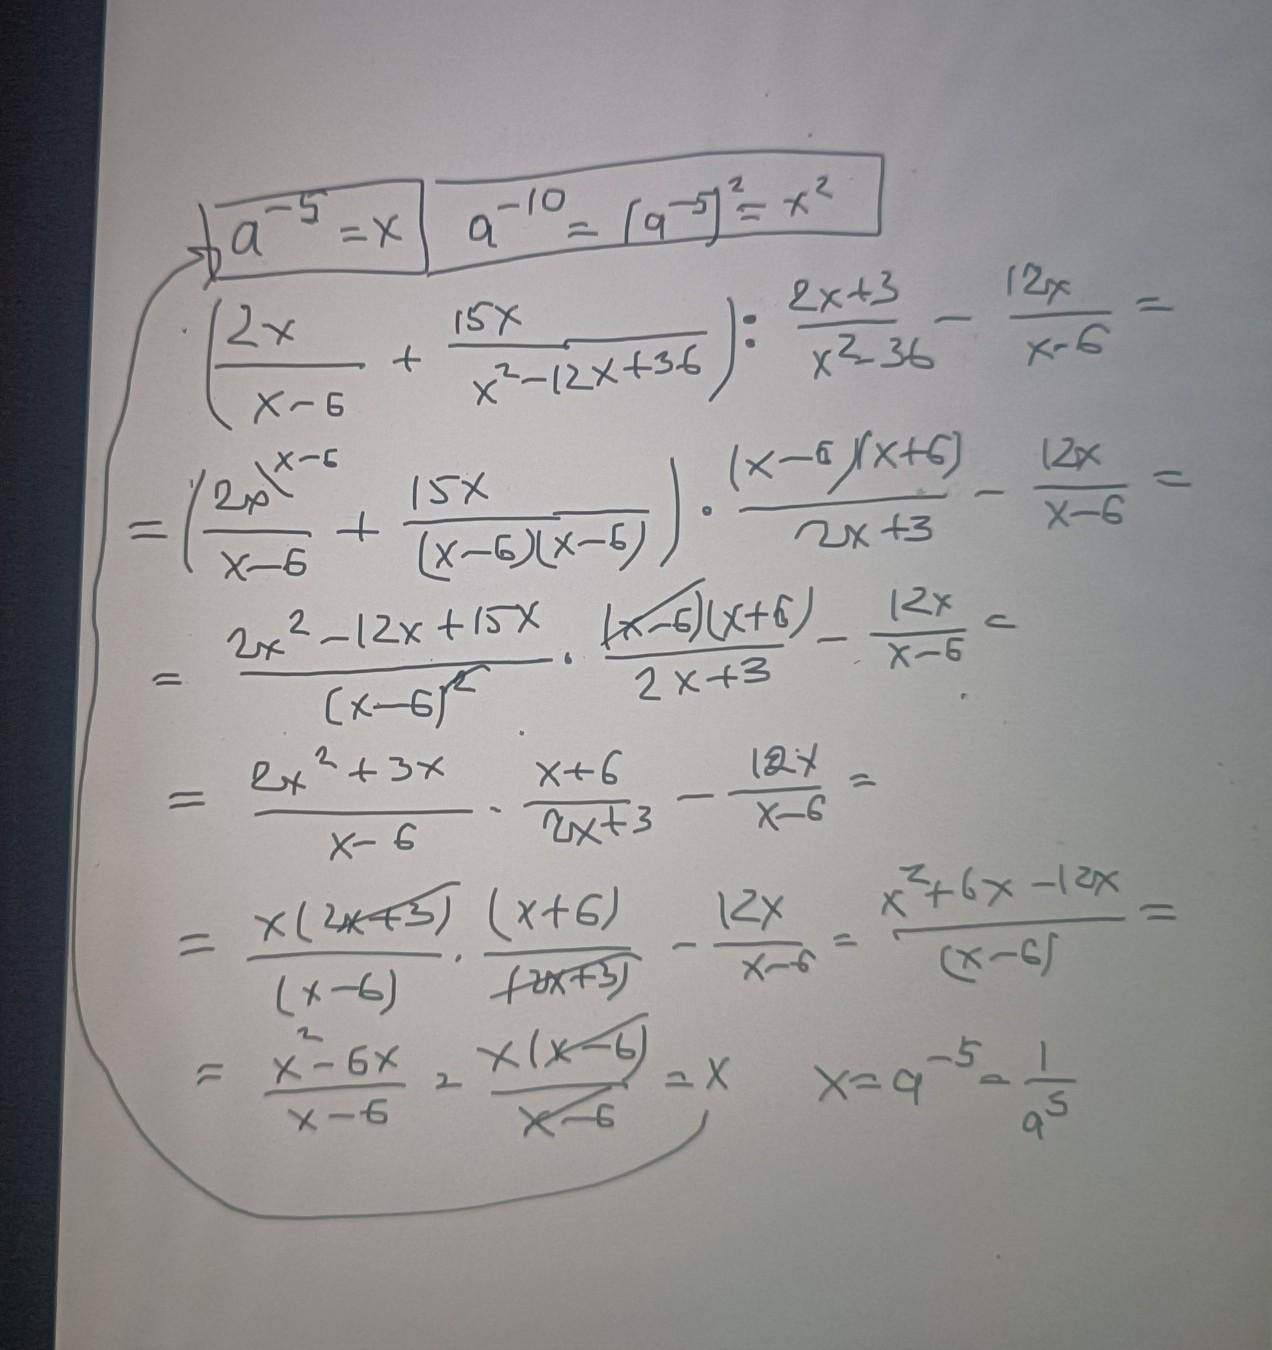 a⁻⁵ = x   a⁻¹⁰ = (a⁻⁵)² = x²
(2x/(x-6) + 15x/(x²-12x+36)) : (2x+3)/(x²-36) - 12x/(x-6) =
= (2x\x-6/(x-6) + 15x/((x-6)(x-6))) · (x-6)(x+6)/(2x+3) - 12x/(x-6) =
= (2x²-12x+15x)/(x-6)² · (x-6)(x+6)/(2x+3) - 12x/(x-6) =
= (2x²+3x)/(x-6) · (x+6)/(2x+3) - 12x/(x-6) =
= x(2x+3)/(x-6) · (x+6)/(2x+3) - 12x/(x-6) = (x²+6x-12x)/(x-6) =
= (x²-6x)/(x-6) = x(x-6)/(x-6) = x   x = a⁻⁵ = 1/a⁵